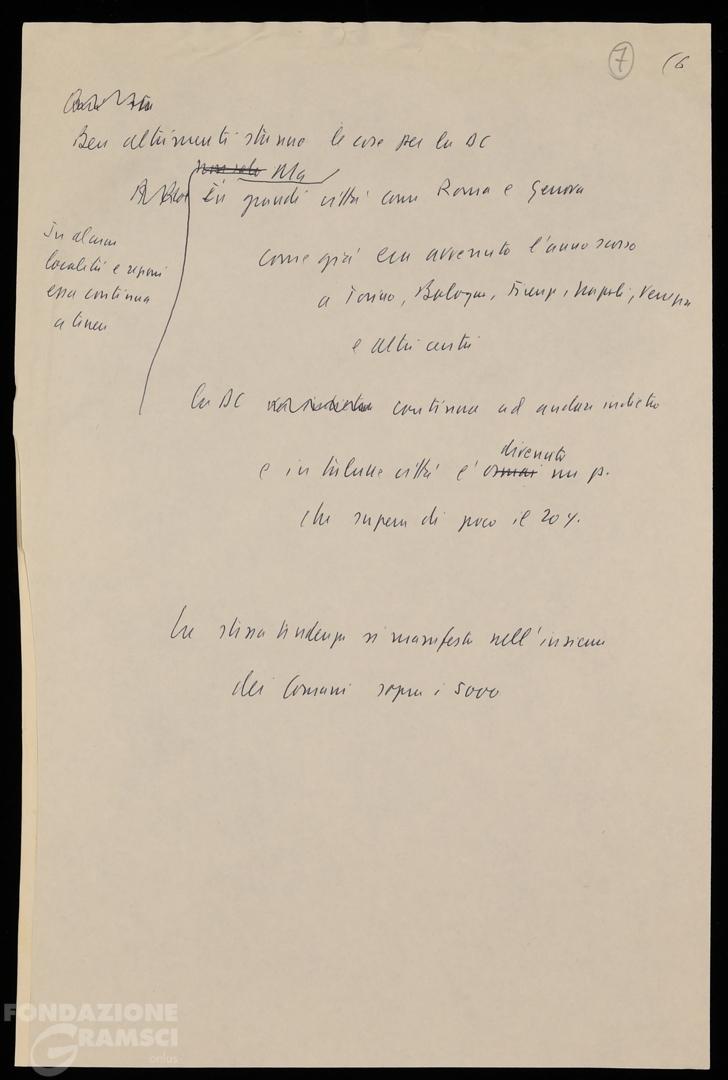 7 (6
Ben altrimenti stanno le cose per la DC
non solo Ma
In grandi città come Roma e Genova
In alcune
località e regioni
essa continua
a tenere
come già era avvenuto l'anno scorso
a Torino, Bologna, Firenze, Napoli, Venezia
e altri centri
la DC continua ad andare indietro
divenuto
e in talune città è ormai un p.
che supera di poco il 20%.
La stessa tendenza si manifesta nell'insieme
dei Comuni sopra i 5000
FONDAZIONE
GRAMSCI
onlus